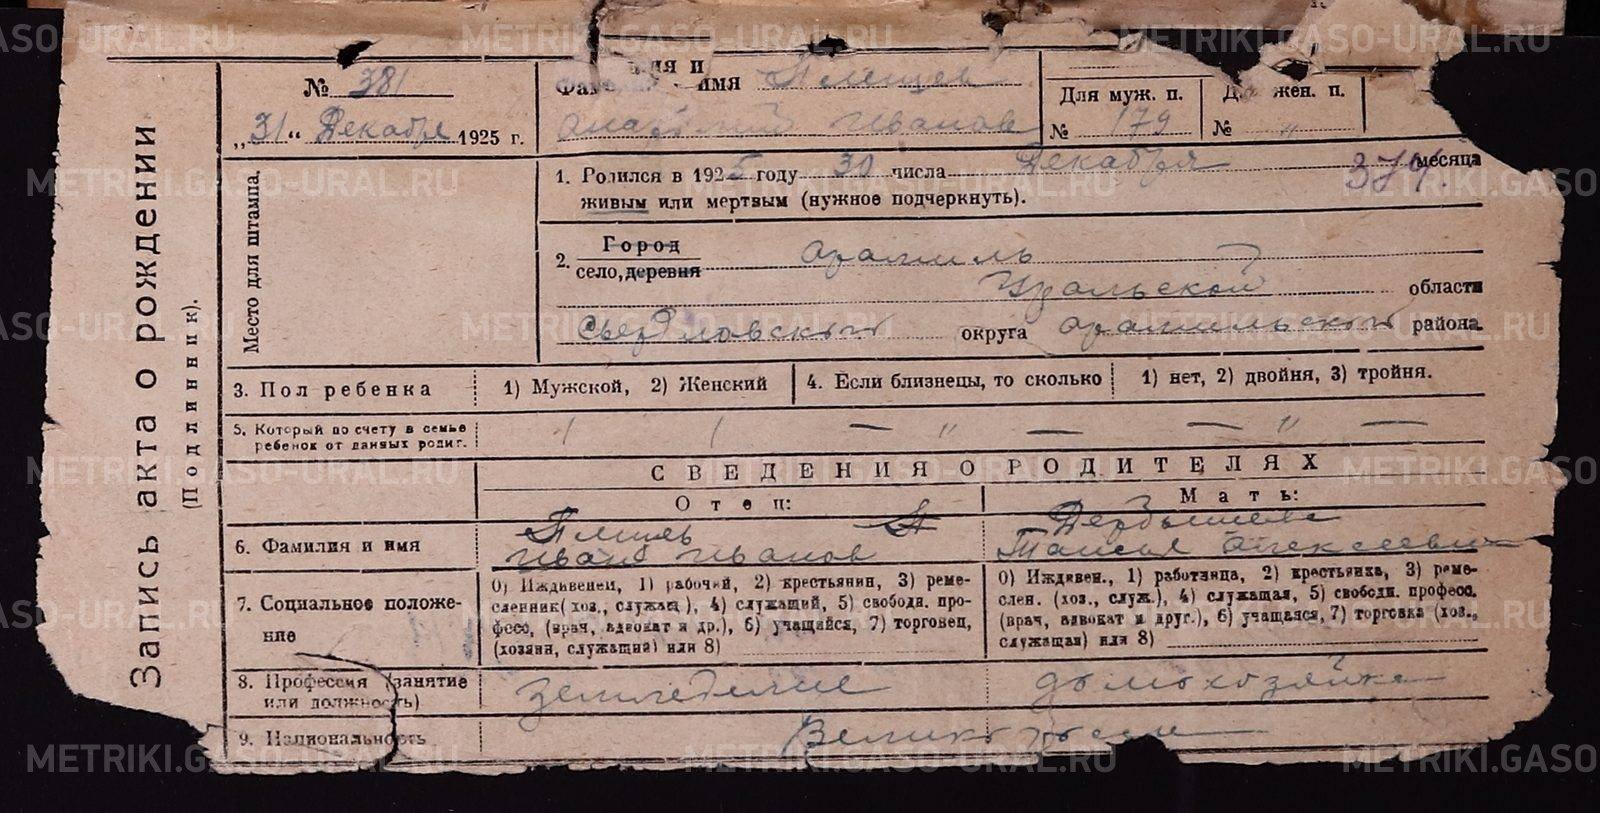 Запись акта о рождении
(Подлинник).
№ 381
„31“ Декабря 1925 г.
Место для штампа.
имя
Анатолий Иванов
Для муж. п.
№ 179
жен. п.
№ "
1. Родился в 1925 году 30 числа Декабря месяца
374.
живым или мертвым (нужное подчеркнуть).
2. Город
село, деревня Арамиль
Уральской области
Свердловского округа Арамильского района
3. Пол ребенка 1) Мужской, 2) Женский 4. Если близнецы, то сколько 1) нет, 2) двойня, 3) тройня.
5. Который по счету в семье
ребенок от данных родит. 1 1 — " — — " —
СВЕДЕНИЯ О РОДИТЕЛЯХ
Отец: Мать:
6. Фамилия и имя
Иван Иванов
Таисья Алексеевн
7. Социальное положение
0) Иждивенец, 1) рабочий, 2) крестьянин, 3) реме-
сленник (хоз., служащ.), 4) служащий, 5) свободн. про-
фесс, (врач, адвокат и др.), 6) учащийся, 7) торговец,
(хозяин, служащий) или 8)
0) Иждивен., 1) работница, 2) крестьянка, 3) реме-
слен. (хоз., служ.), 4) служащая, 5) свободн. професс.
(врач, адвокат и друг.), 6) учащаяся, 7) торговка (хоз.,
служащая) или 8)
8. Профессия (занятие
или должность) земледелие домохозяйка
9. Национальность Великоросы
METRIKI.GASO-URAL.RU